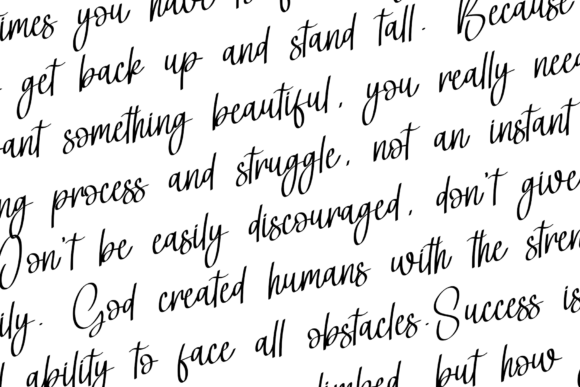 times you have to
get back up and stand tall. Because
ant something beautiful, you really need
ng process and struggle, not an instant
Don't be easily discouraged, don't give
ily. God created humans with the stren
ability to face all obstacles. Success is
limbed, but how